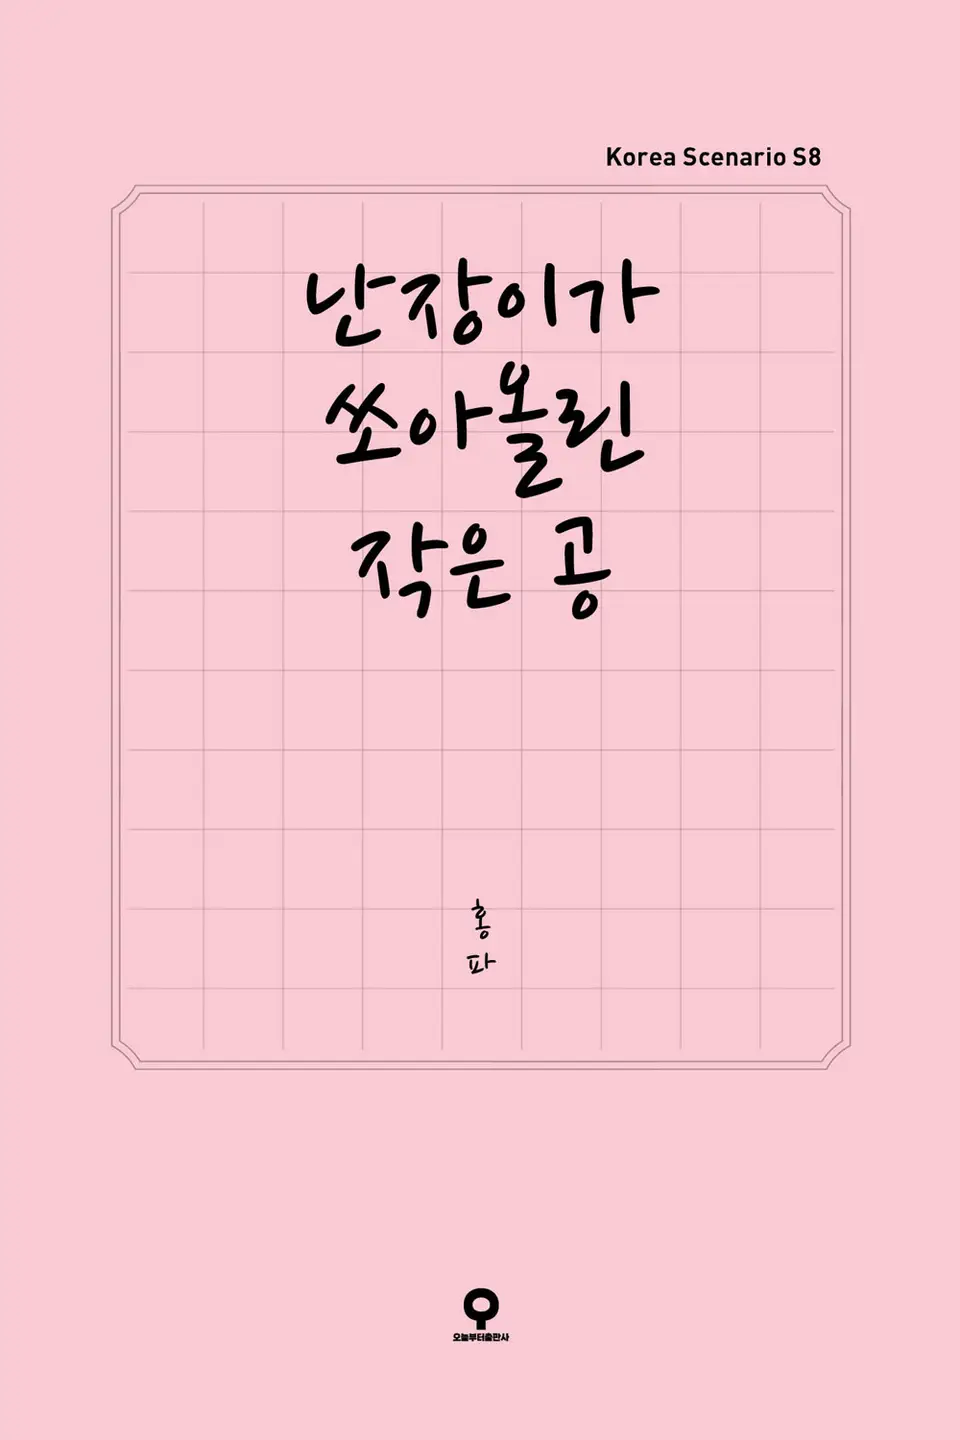 Korea Scenario S8
난장이가
쏘아올린
작은 공
홍
파
오늘부터출판사